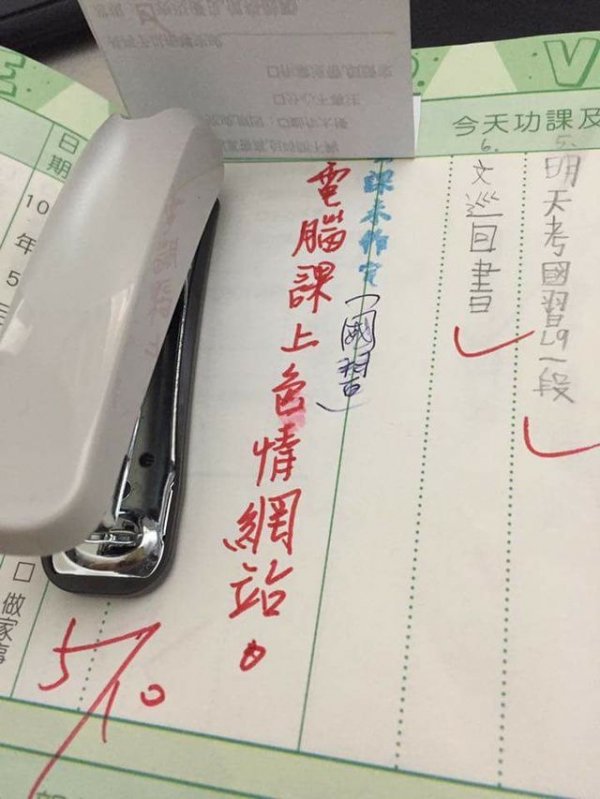 E V
今天功課及
明天考國習L9一段
6.文巡回書
課未
(國習)
電腦課上色情網站。
日期
10年5
□做家事
5/10